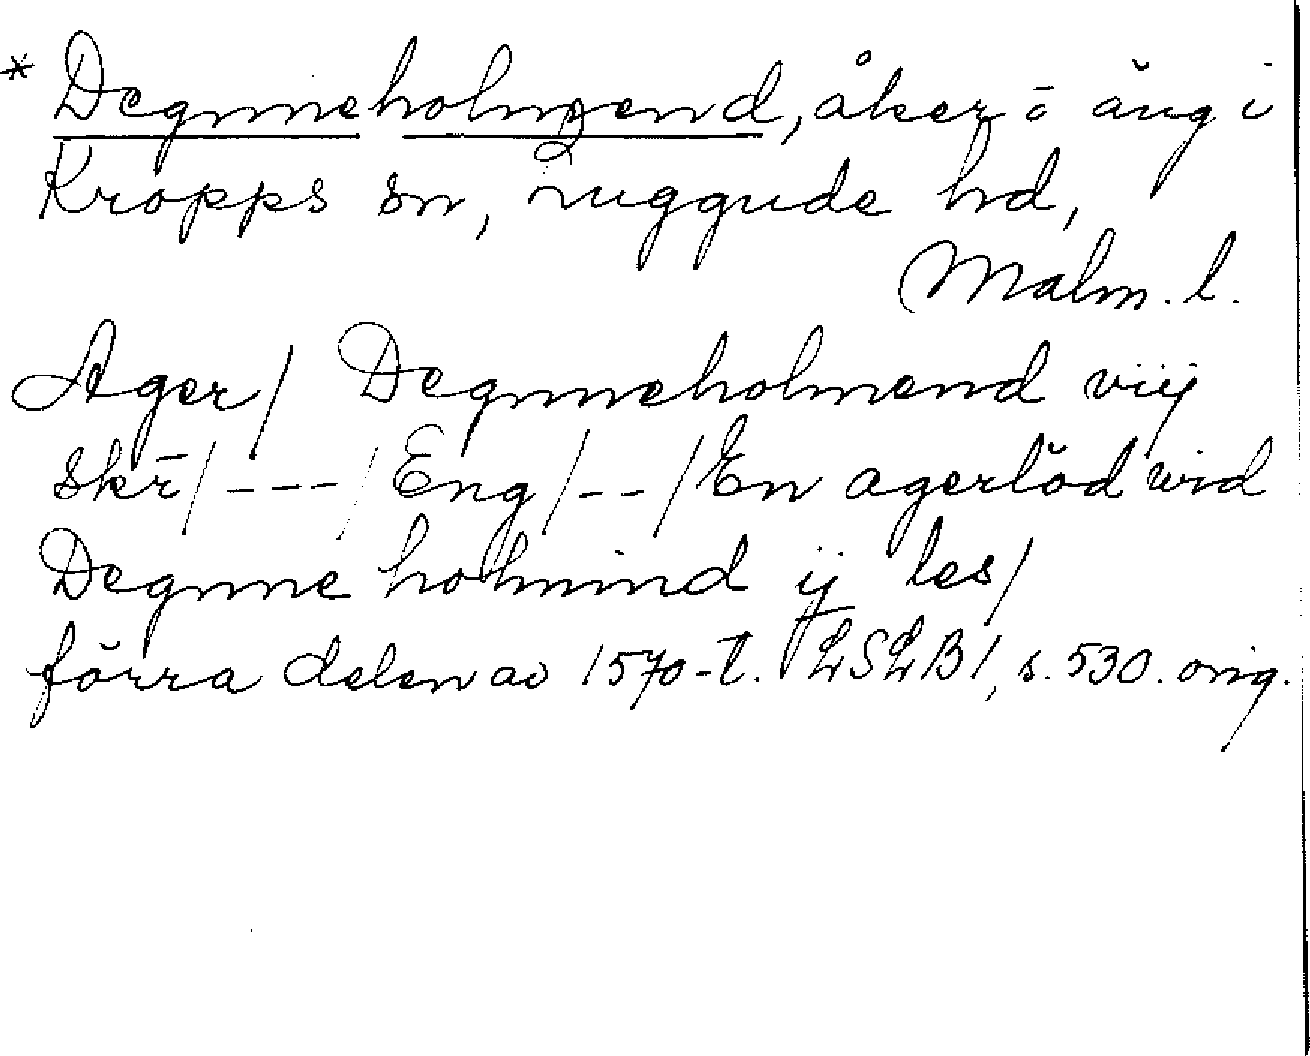 * Degnneholmend, åker o äng i
Kropps sn, Luggude hd,
Malm. l.
Ager/ Degnneholmend viij
skr̄/---/Eng/--/En agerlöd wid
Degnne holmind ij les/
förra delen av 1570-t. LSLB1, s. 530. orig.